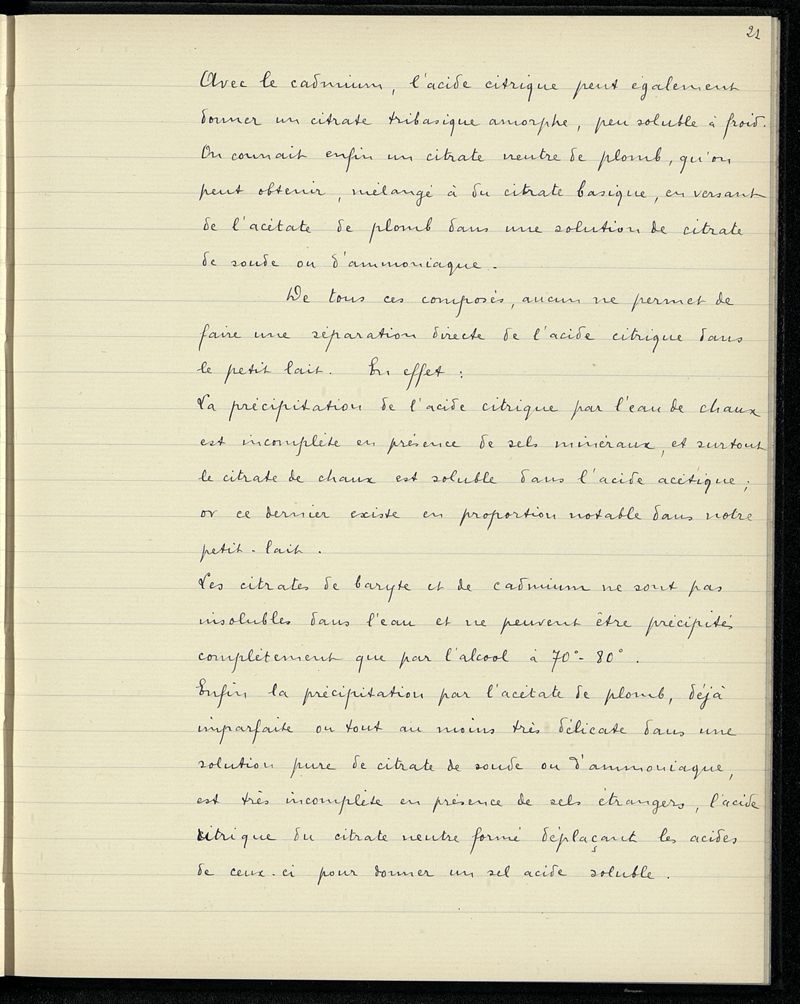 21
Avec le cadmium, l'acide citrique peut également
donner un citrate tribasique amorphe, peu soluble à froid.
On connait enfin un citrate neutre de plomb, qu'on
peut obtenir, mélangé à du citrate basique, en versant
de l'acétate de plomb dans une solution de citrate
de soude ou d'ammoniaque.
De tous ces composés, aucun ne permet de
faire une séparation directe de l'acide citrique dans
le petit lait. En effet :
La précipitation de l'acide citrique par l'eau de chaux
est incomplète en présence de sels minéraux, et surtout
le citrate de chaux est soluble dans l'acide acétique ;
or ce dernier existe en proportion notable dans notre
petit-lait.
Les citrates de baryte et de cadmium ne sont pas
insolubles dans l'eau et ne peuvent être précipités
complètement que par l'alcool à 70° - 80°.
Enfin la précipitation par l'acétate de plomb, déjà
imparfaite ou tout au moins très délicate dans une
solution pure de citrate de soude ou d'ammoniaque,
est très incomplète en présence de sels étrangers, l'acide
citrique du citrate neutre formé déplaçant les acides
de ceux-ci pour donner un sel acide soluble.